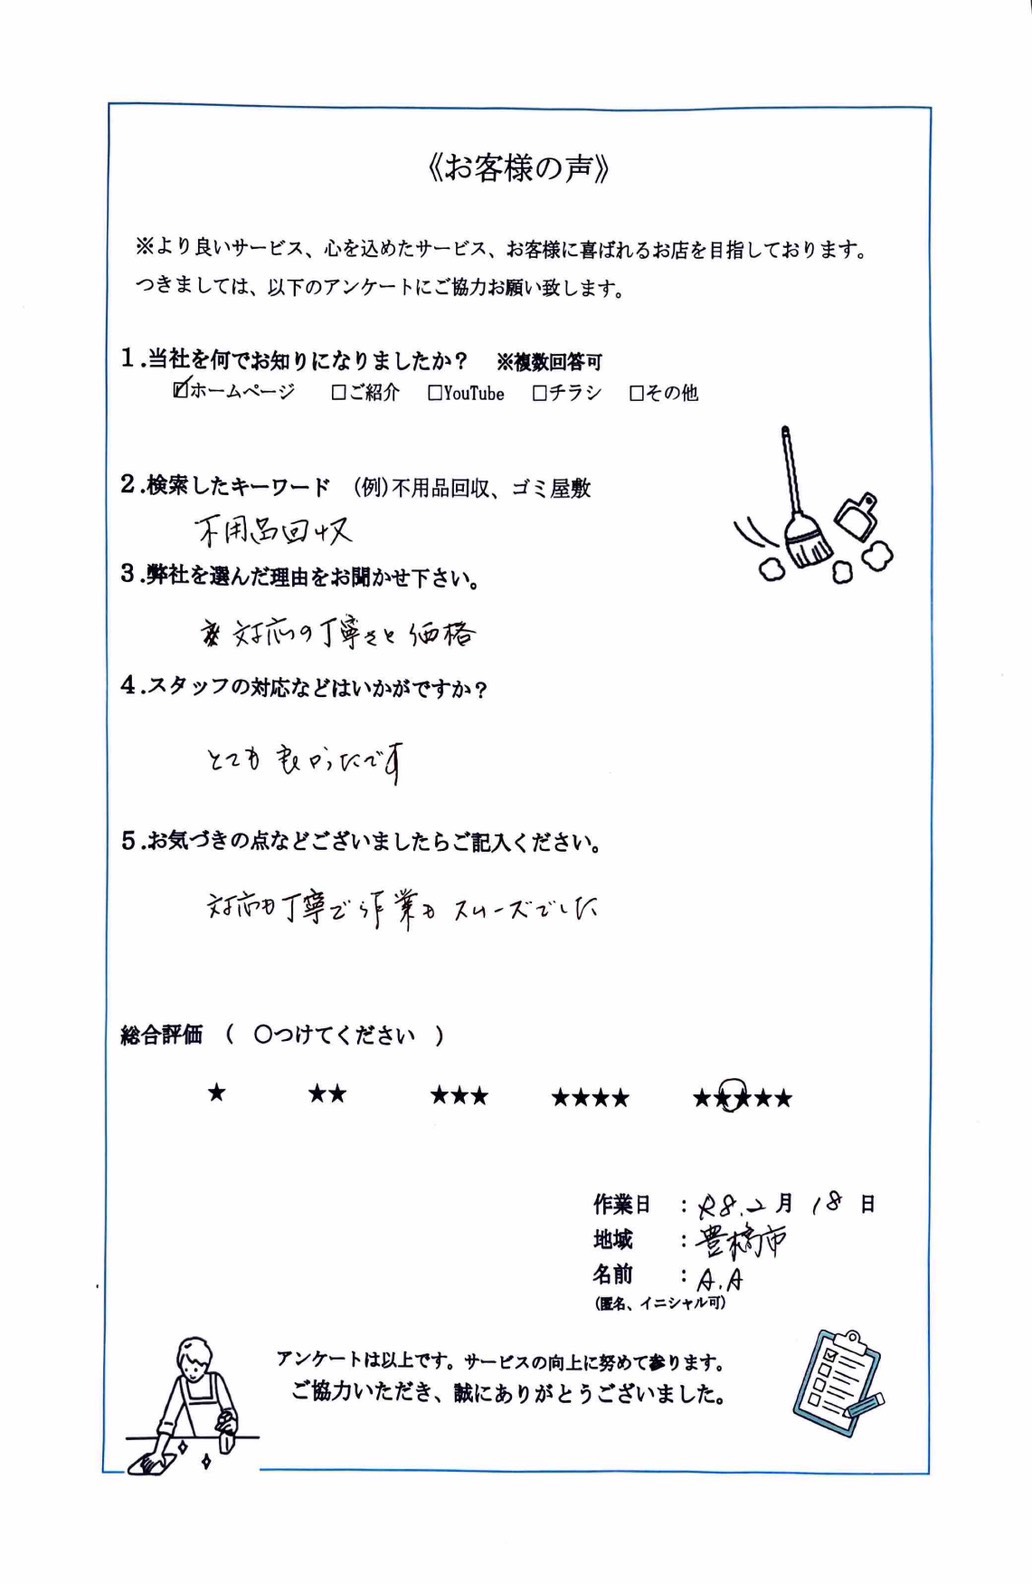 《お客様の声》
※より良いサービス、心を込めたサービス、お客様に喜ばれるお店を目指しております。
つきましては、以下のアンケートにご協力お願い致します。
1.当社を何でお知りになりましたか？　※複数回答可
☑ホームページ　□ご紹介　□YouTube　□チラシ　□その他
2.検索したキーワード　(例)不用品回収、ゴミ屋敷
不用品回収
3.弊社を選んだ理由をお聞かせ下さい。
対応の丁寧さと価格
4.スタッフの対応などはいかがですか？
とても良かったです
5.お気づきの点などございましたらご記入ください。
対応も丁寧で作業もスムーズでした
総合評価　(　○つけてください　)
★　★★　★★★　★★★★　★★★★★
作業日　：R8.2月18日
地域　：豊橋市
名前　：A.A
(匿名、イニシャル可)
アンケートは以上です。サービスの向上に努めて参ります。
ご協力いただき、誠にありがとうございました。